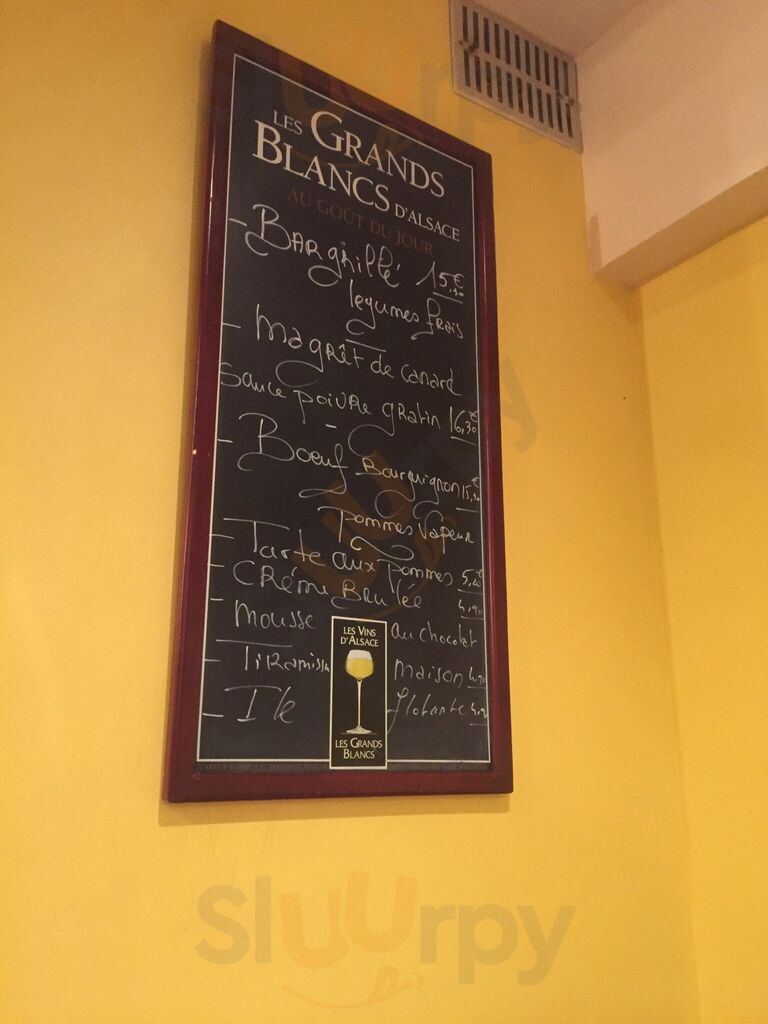 LES GRANDS
BLANCS D'ALSACE
AU GOÛT DU JOUR
- BAR grillé 15€
légumes frais
- Magrêt de canard
sauce poivre gratin 16,30€
- Boeuf Bourguignon
Pommes Vapeur
- Tarte aux pommes 5,20
- CRème BRulée 4,90
- Mousse au chocolat
- Tiramissu maison 4,90
- Ile flotante 4,90
LES VINS
D'ALSACE
LES GRANDS
BLANCS
Sluurpy